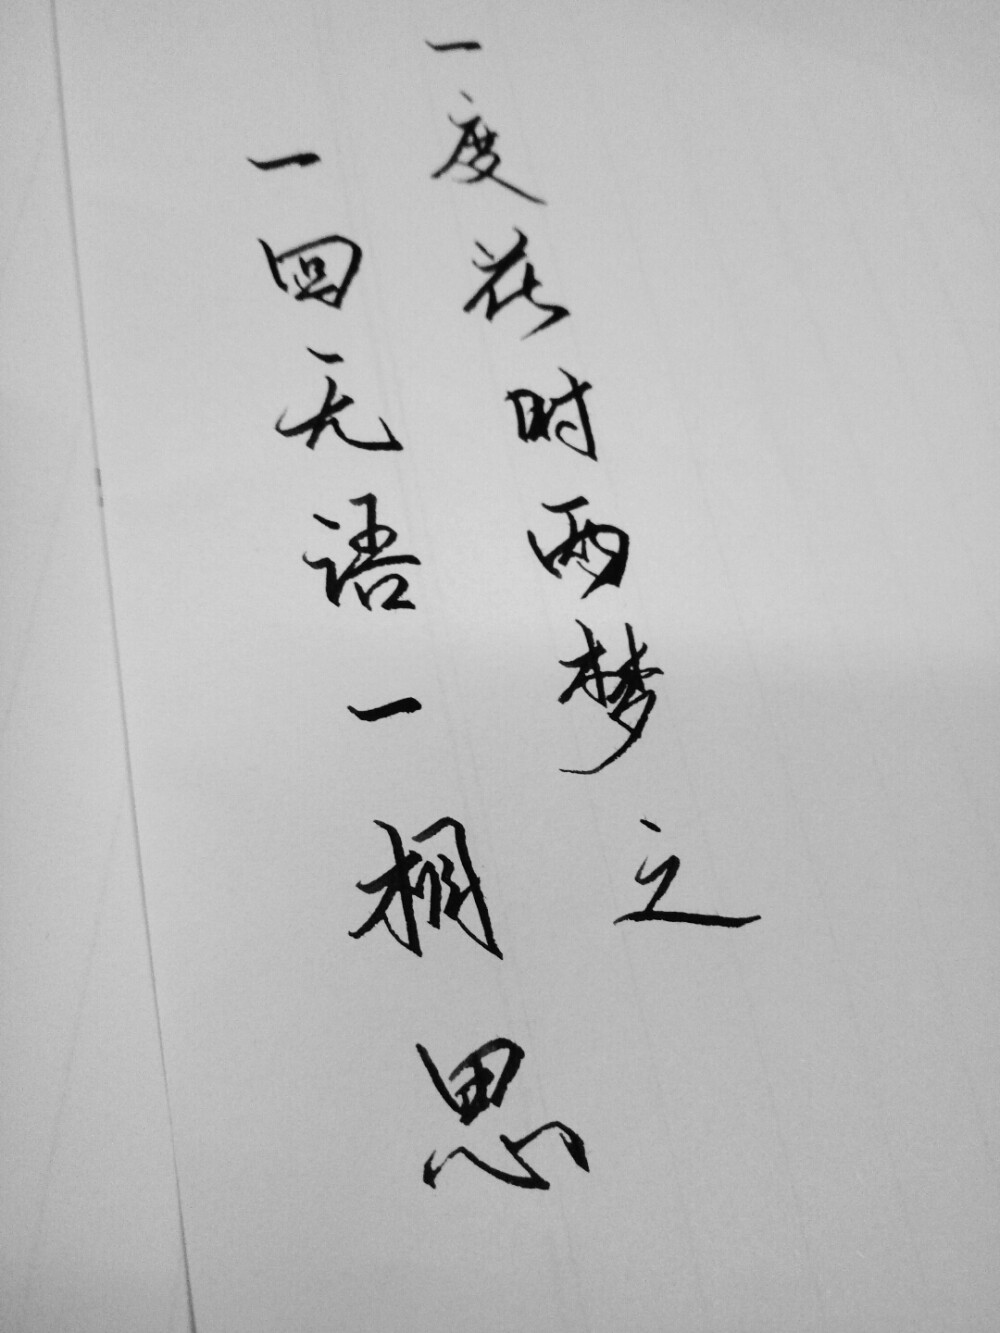 一度花时两梦之
一回无语一相思